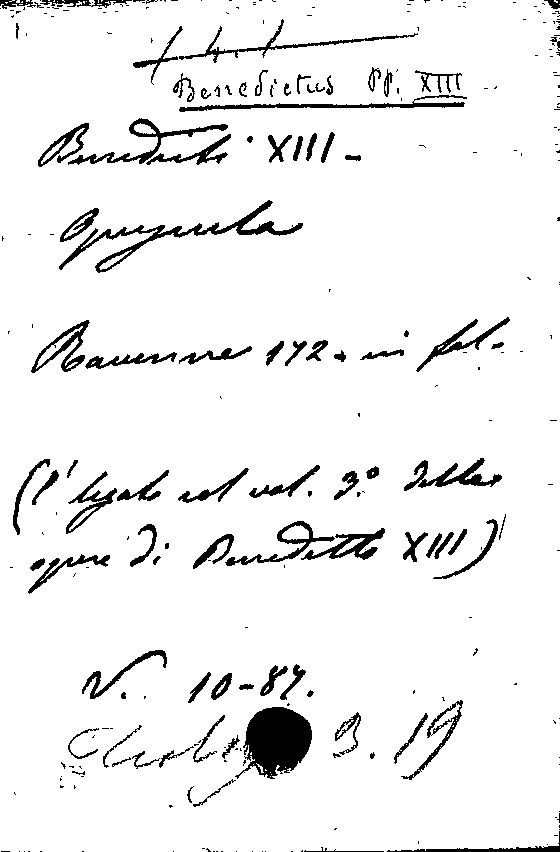 Benedictus PP. XIII
Benedictus XIII -
Opuscula
Ravennae 172. in fol.
(È legato nel vol. 3.º delle
opere di Benedetto XIII)
V. 10-87.
3. 19